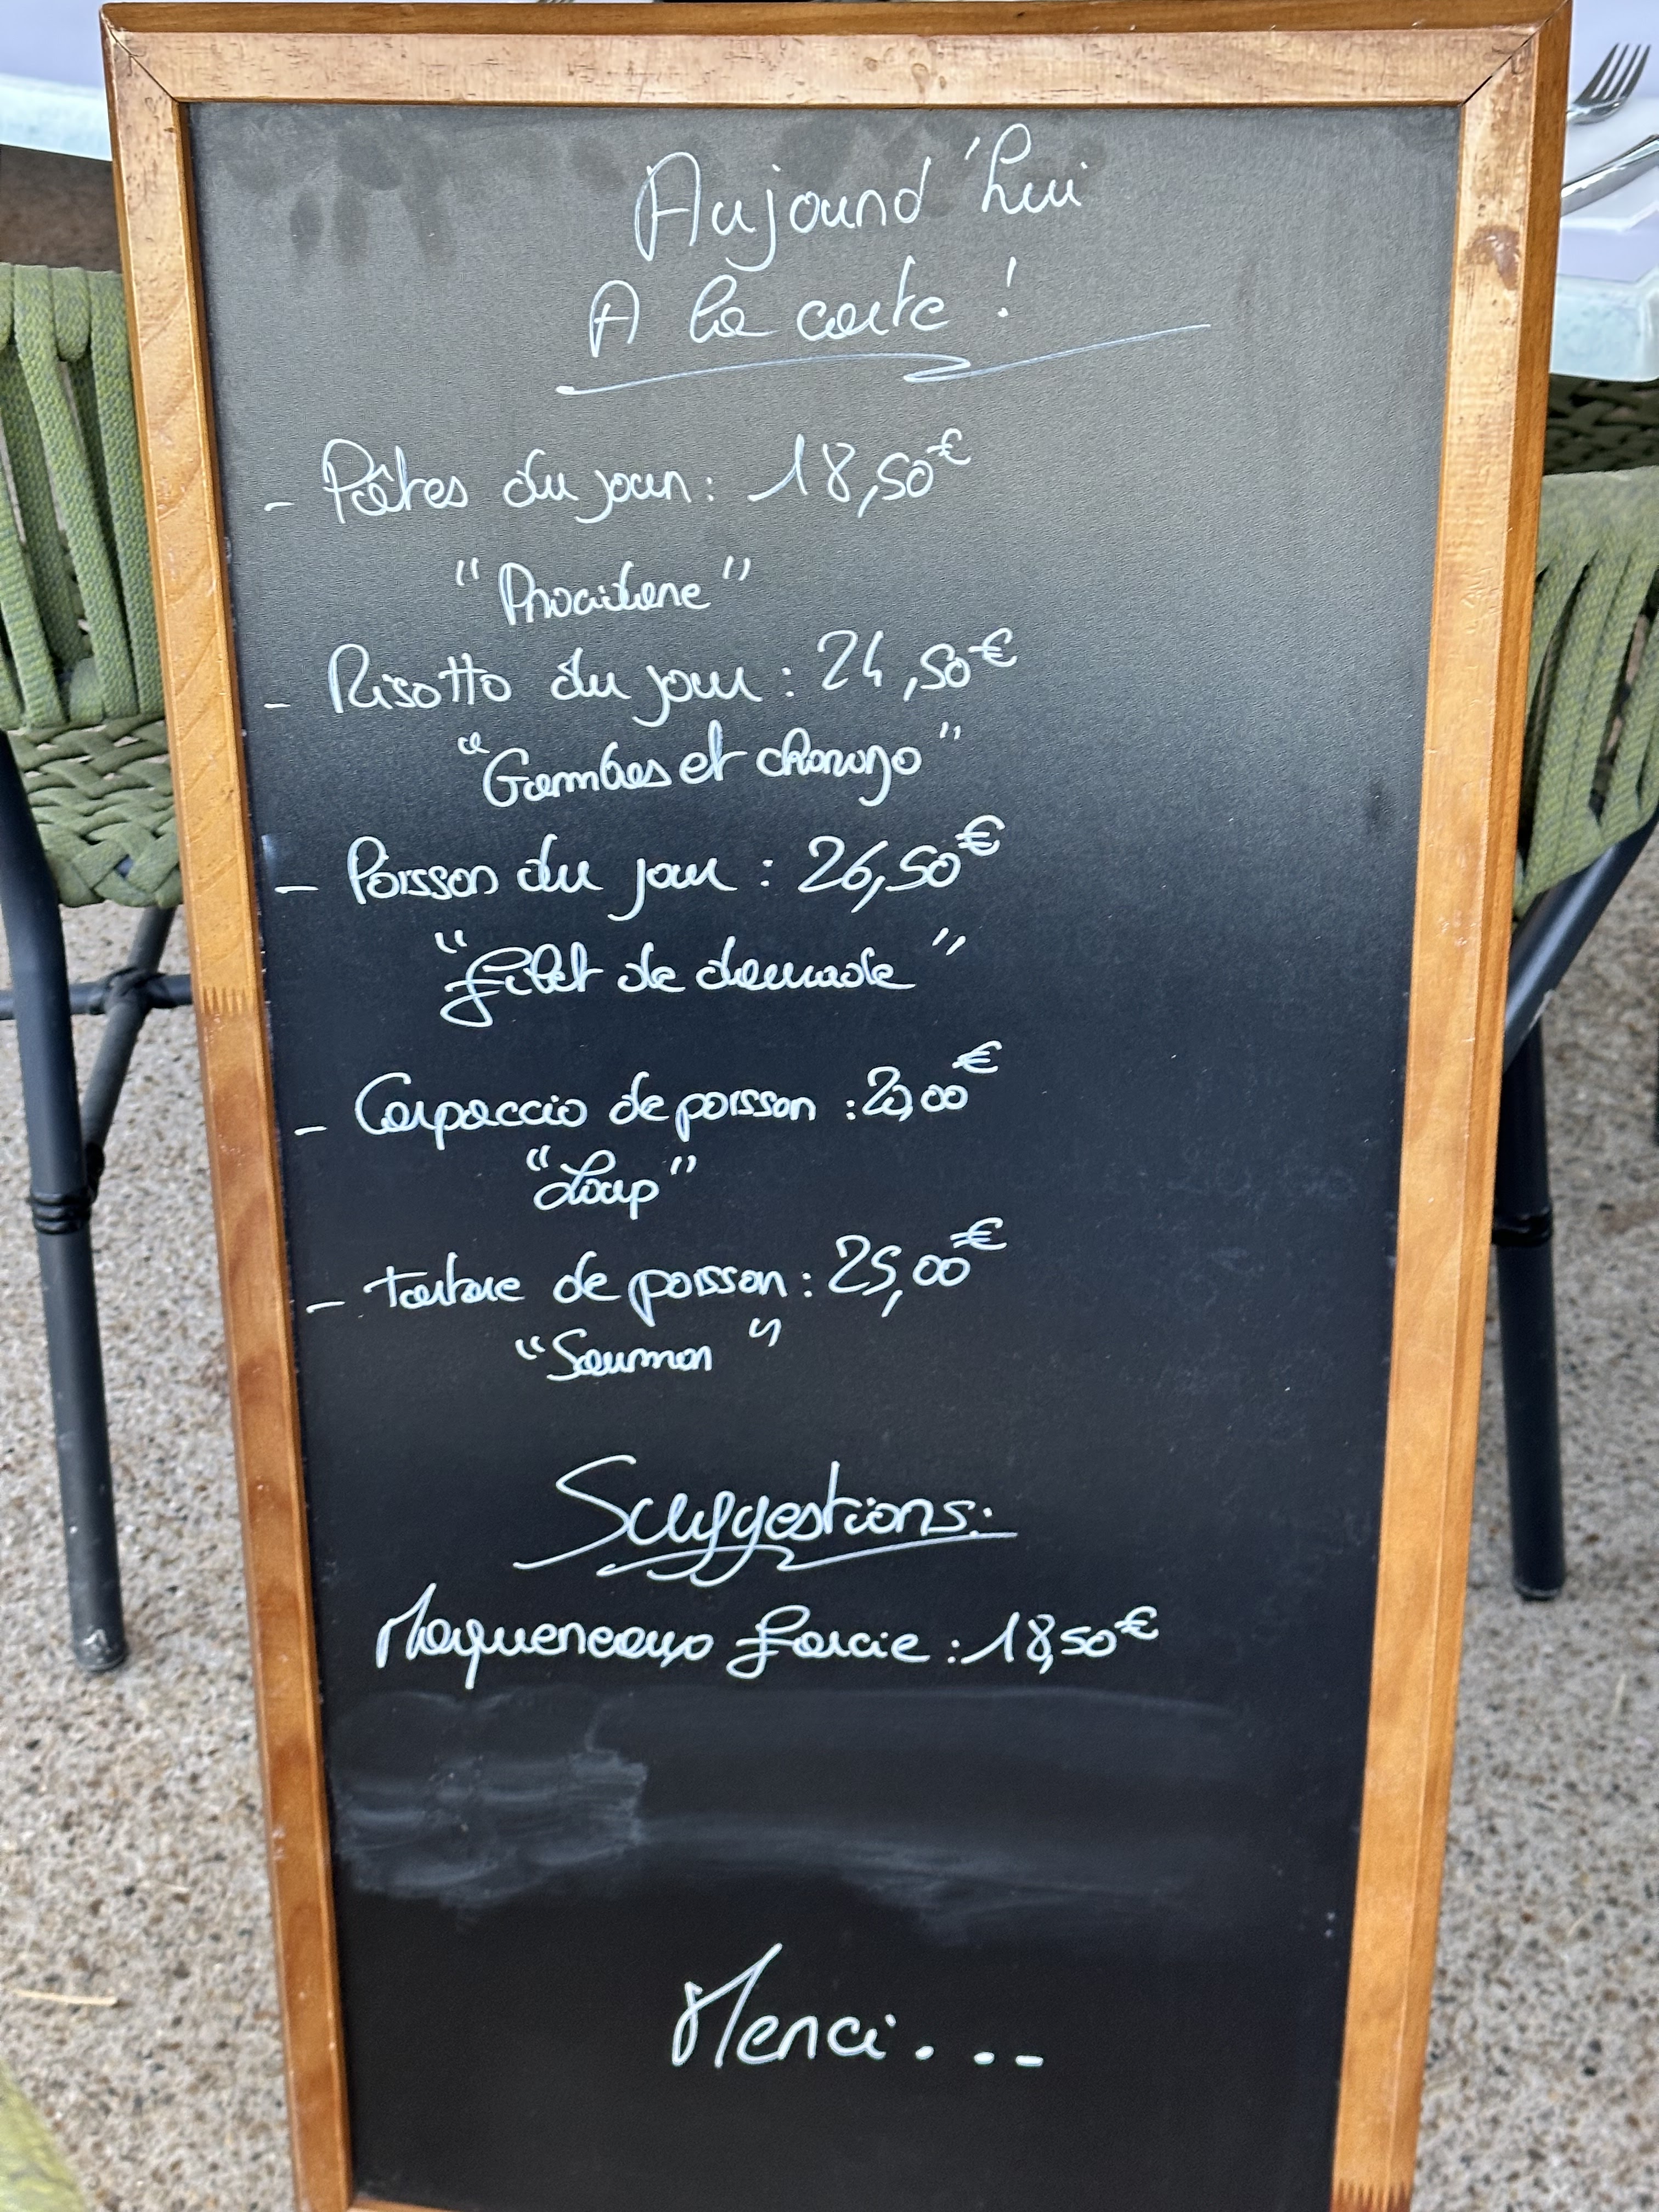 Aujourd'hui
A la carte !
- Pâtes du jour : 18,50€
- Risotto du jour : 24,50€
"Gambas et chorizo"
- Poisson du jour : 26,50€
"filet de daurade"
- Carpaccio de poisson : 20,00€
"Loup"
- tartare de poisson : 25,00€
"Saumon"
Suggestions :
Maquereaux farcie : 18,50€
Merci...